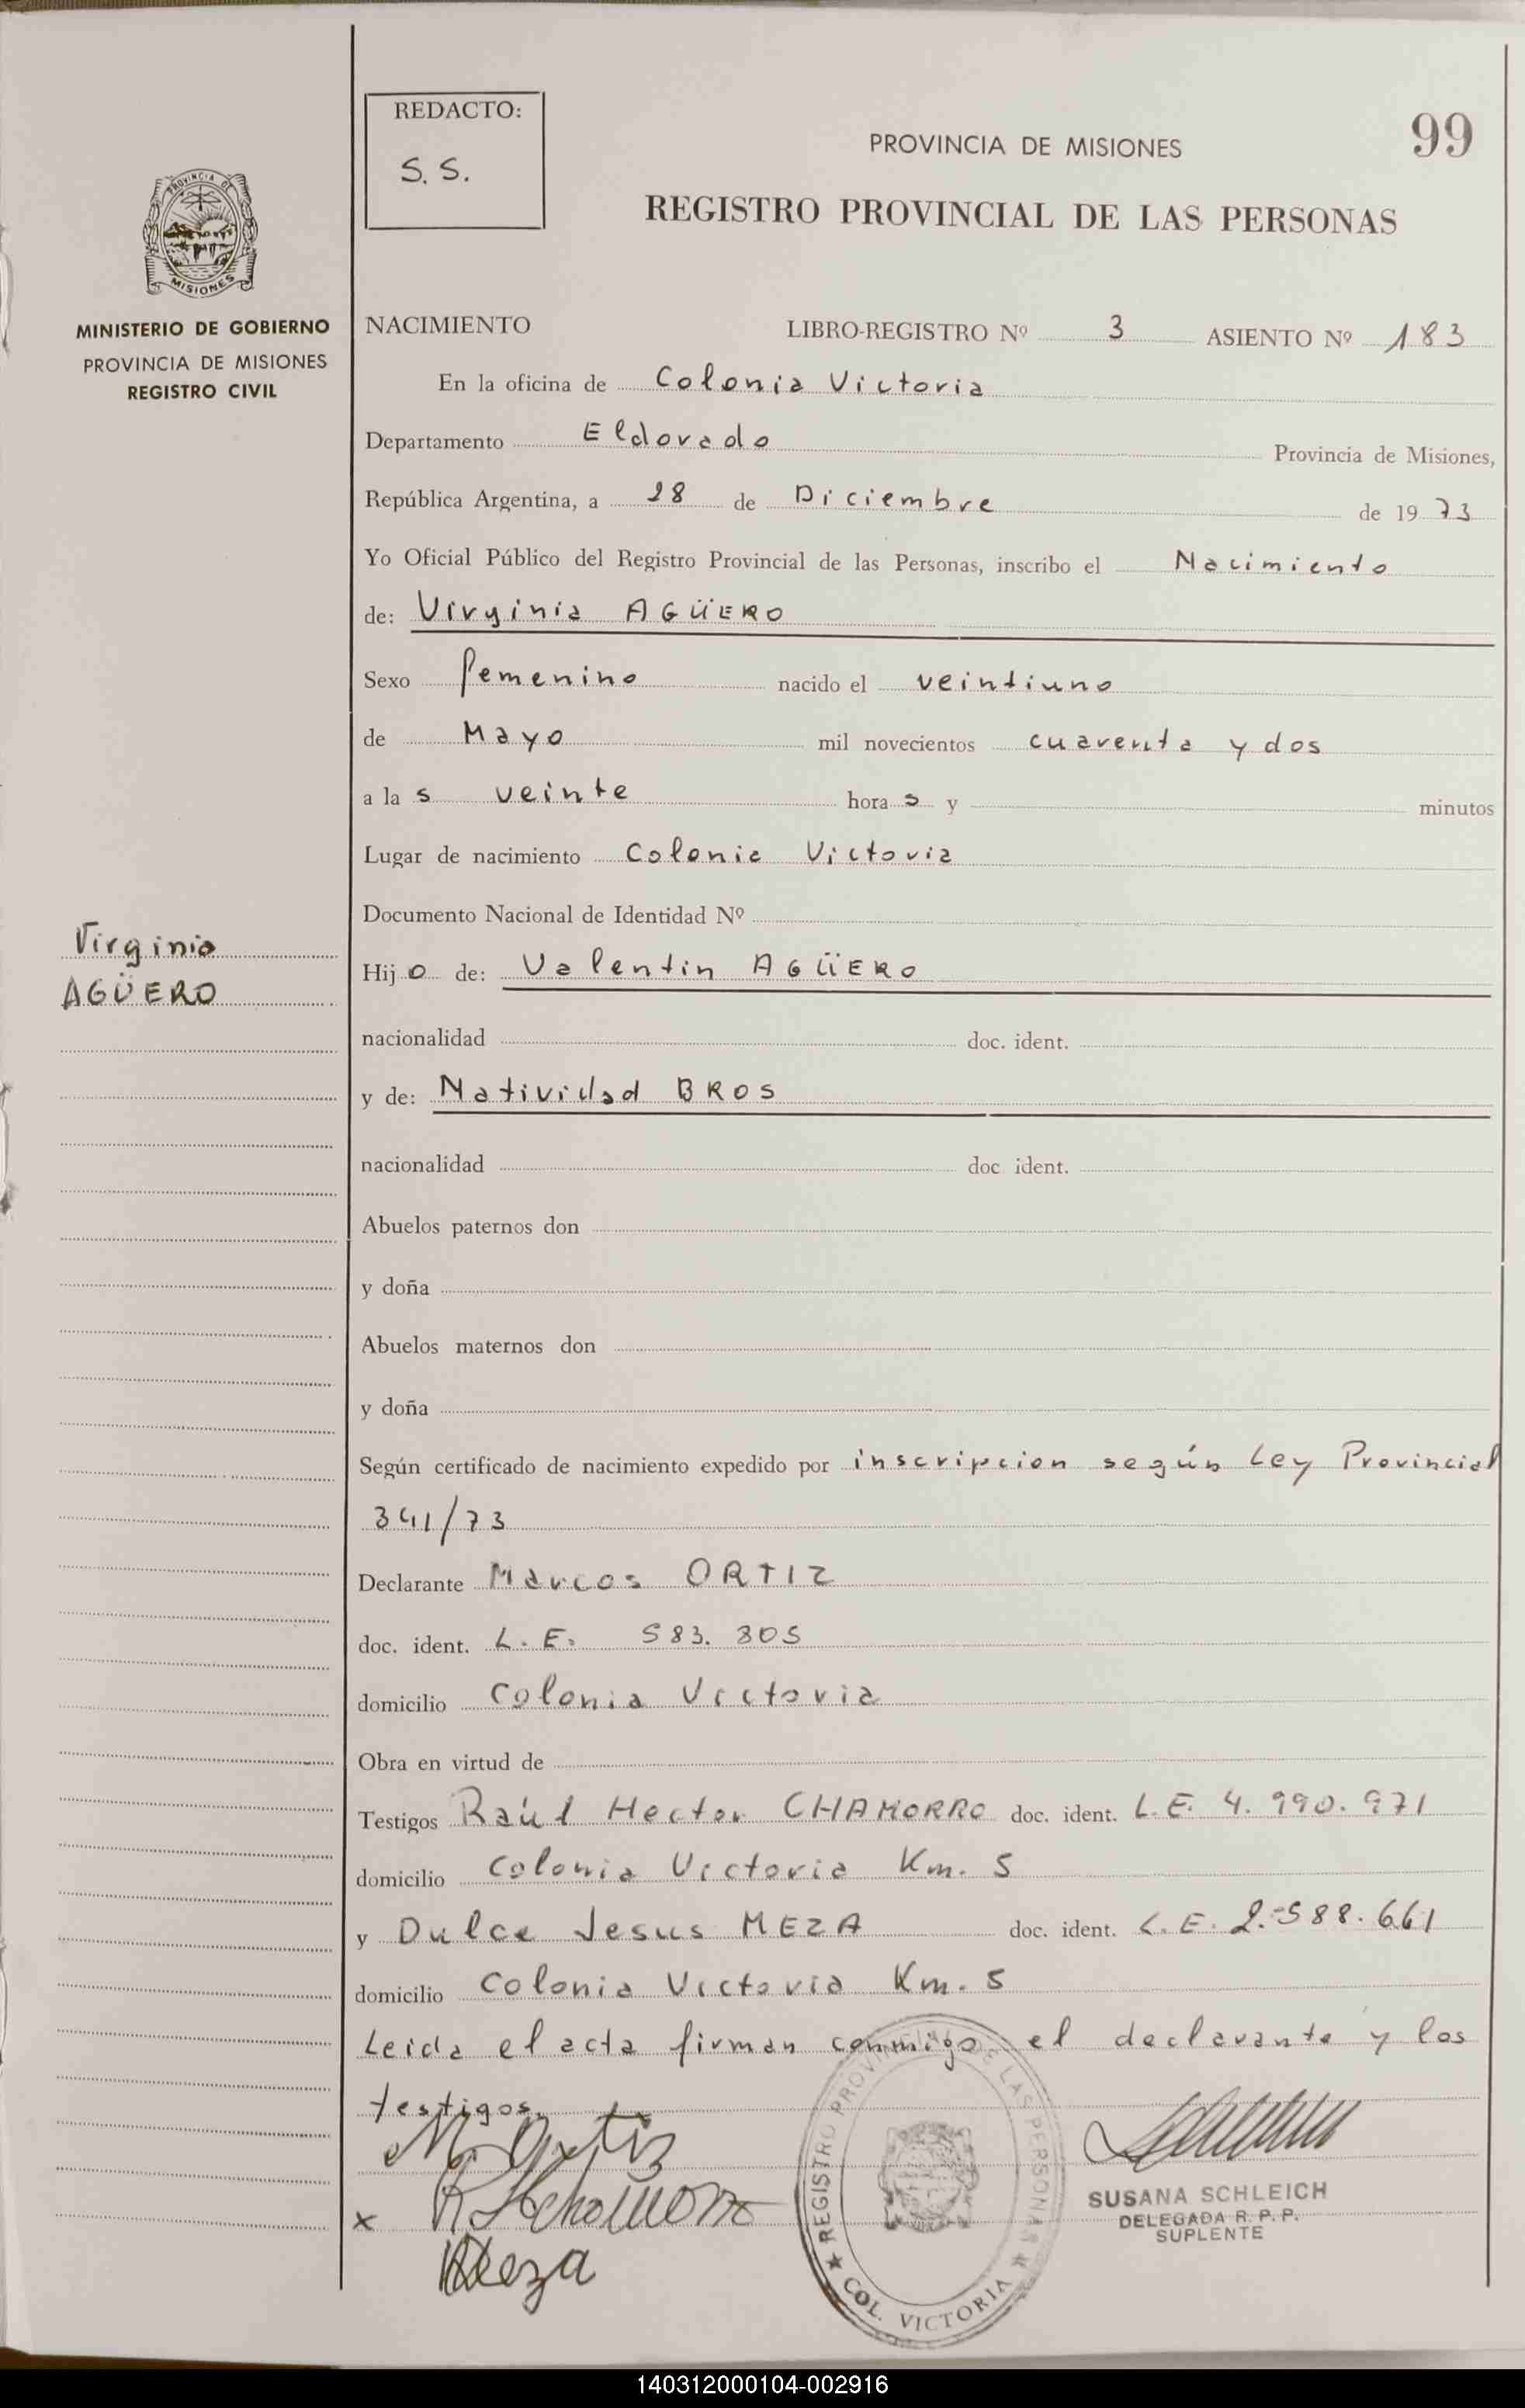 REDACTO:
S. S.
99
PROVINCIA DE MISIONES
REGISTRO PROVINCIAL DE LAS PERSONAS
PROVINCIA DE
MISIONES
MINISTERIO DE GOBIERNO
PROVINCIA DE MISIONES
REGISTRO CIVIL
NACIMIENTO LIBRO-REGISTRO Nº 3 ASIENTO Nº 183
En la oficina de Colonia Victoria
Departamento Eldorado Provincia de Misiones,
República Argentina, a 28 de Diciembre de 19 73
Yo Oficial Público del Registro Provincial de las Personas, inscribo el Nacimiento
de: Virginia AGÜERO
Sexo femenino nacido el veintiuno
de Mayo mil novecientos cuarenta y dos
a la s veinte hora s y minutos
Lugar de nacimiento Colonia Victoria
Documento Nacional de Identidad Nº
Virginia
AGÜERO
Hij o de: Valentin AGÜERO
nacionalidad doc. ident.
y de: Natividad BROS
nacionalidad doc. ident.
Abuelos paternos don
y doña
Abuelos maternos don
y doña
Según certificado de nacimiento expedido por inscripcion según Ley Provincial
341/73
Declarante Marcos ORTIZ
doc. ident. L. E. 583. 305
domicilio Colonia Victoria
Obra en virtud de
Testigos Raúl Hector CHAMORRO doc. ident. L. E. 4. 990. 971
domicilio Colonia Victoria Km. 5
y Dulce Jesus MEZA doc. ident. L. E. 2.588.661
domicilio Colonia Victoria Km. 5
Leida el acta firman conmigo el declarante y los
testigos.
M. Ortiz
x R H Chamorro
Meza
REGISTRO PROVINCIAL DE LAS PERSONAS
COL. VICTORIA
SUSANA SCHLEICH
DELEGADA R. P. P.
SUPLENTE
140312000104-002916